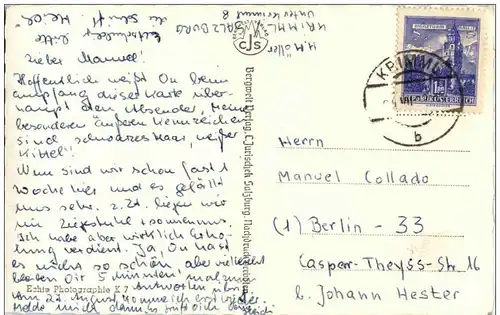 Entschuldigt bitte
die Schrift
Lieber Manuel!
Hoffentlich weißt Du beim
Empfang dieser Karte über-
haupt den Absender, Meine
besonderen äußeren Kennzeichen
sind schwarzes Haar, weißer
Kittel!
Nun sind wir schon fast 1
Woche hier und es gefällt
uns sehr. z.Zt. liegen wir
im Liegestuhl + sonnen uns.
Ich habe aber wirklich Erho-
lung verdient. Ja, Du hast
es nicht so schön aber vielleicht
bleiben Dir 5 Minuten mal zum
Antworten übrig
Am 22. August komme ich erst wieder
melde mich dann
Echte Photographie K 7
H. Möller
KRIMML
Unterkrimml 8
SALZBURG
CJS
Bergwelt Verlag, C. Jurischek, Salzburg. Nachdruck verboten
REPUBLIK ÖSTERREICH
KRIMML
b
Herrn
Manuel Collado
(1) Berlin - 33
Casper-Theyss-Str. 16
b. Johann Hester